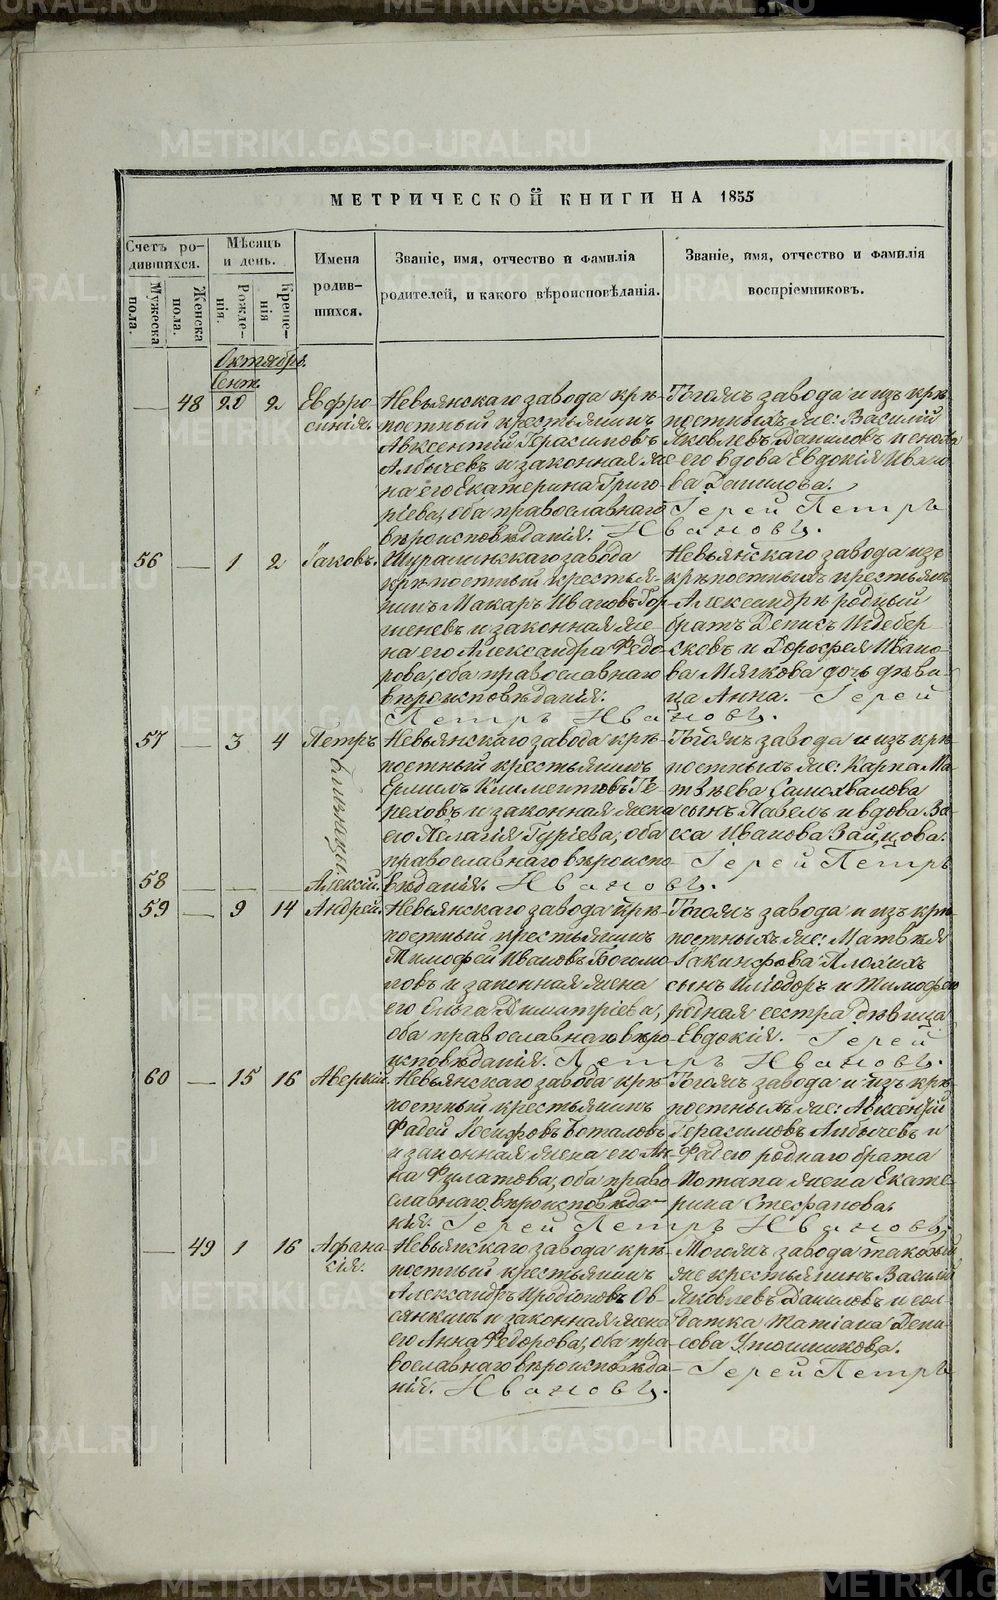 МЕТРИЧЕСКОЙ КНИГИ НА 1855
Счетъ ро-
дившихся.
Мѣсяцъ
и день.
Мужеска
пола.
Женска
пола.
Рожде-
нія.
Креще-
нія
Имена
родив-
шихся.
Званіе, имя, отчество и фамилія
родителей, и какого вѣроисповѣданія.
Званіе, имя, отчество и фамилія
воспріемниковъ.
Октябрь.
Сент.
— 48 20 2 Евфро-
синія.
Невьянскаго завода крѣ-
постный крестьянинъ
Авксентій Герасимовъ
и законная же-
на его Екатерина Григо-
рьева, оба православнаго
вѣроисповѣданія.
Тогожъ завода и изъ крѣ-
постныхъ же: Василій
Яковлевъ Даниловъ и
его вдова Евдокія Ивано-
ва Данилова.
Іерей Петръ
Ивановъ.
56 — 1 2 Іаковъ.
Шуралинскаго завода
крѣпостный крестья-
нинъ Макаръ Ивановъ Гор-
шеневъ и законная же-
на его Александра Ѳедо-
рова, оба православнаго
вѣроисповѣданія.
Невьянскаго завода изъ
крѣпостныхъ крестьянъ
Александрѣ родный
братъ Денисъ
и Дорофея Ивано-
ва Мягкова дочь дѣви-
ца Анна. Іерей
Петръ Ивановъ.
57 — 3 4 Петръ
близнецы.
58 — — — Алексій.
Невьянскаго завода крѣ-
постный крестьянинъ
Ермилъ Климентовъ Те-
реховъ и законная жена
его Пелагія Гуріева, оба
православнаго вѣроиспо-
вѣданія.
Тогожъ завода и изъ крѣ-
постныхъ же: Карпа Ма-
твѣева Самохвалова
сынъ Павелъ и вдова Ва-
сса Иванова Зайцова.
Іерей Петръ
Ивановъ.
59 — 9 14 Андрей.
Невьянскаго завода крѣ-
постный крестьянинъ
Тимофей Ивановъ Богомо-
ловъ и законная жена
его Ольга Димитріева,
оба православнаго вѣро-
исповѣданія.
Тогожъ завода и изъ крѣ-
постныхъ же: Матвѣя
Іакинфова Плохихъ
сынъ Иліодоръ и Тимофею
родная сестра дѣвица
Евдокія. Іерей
Петръ Ивановъ.
60 — 15 16 Аверкій.
Невьянскаго завода крѣ-
постный крестьянинъ
Фадей Іосифовъ Боталовъ
и законная жена его Ан-
на Филатова, оба право-
славнаго вѣроисповѣда-
нія.
Тогожъ завода и изъ крѣ-
постныхъ же: Авксентій
Герасимовъ и
Фадею роднаго брата
Потапа жена Екате-
рина Стефанова.
Іерей Петръ Ивановъ.
— 49 1 16 Афана-
сія.
Невьянскаго завода крѣ-
постный крестьянинъ
Александръ Иродіоновъ Ов-
сянкинъ и законная жена
его Анна Ѳедорова, оба пра-
вославнаго вѣроисповѣда-
нія.
Тогожъ завода таковый
же крестьянинъ Василій
Яковлевъ Даниловъ и сол-
датка Татіана Дени-
сова
Іерей Петръ
Ивановъ.
METRIKI.GASO-URAL.RU